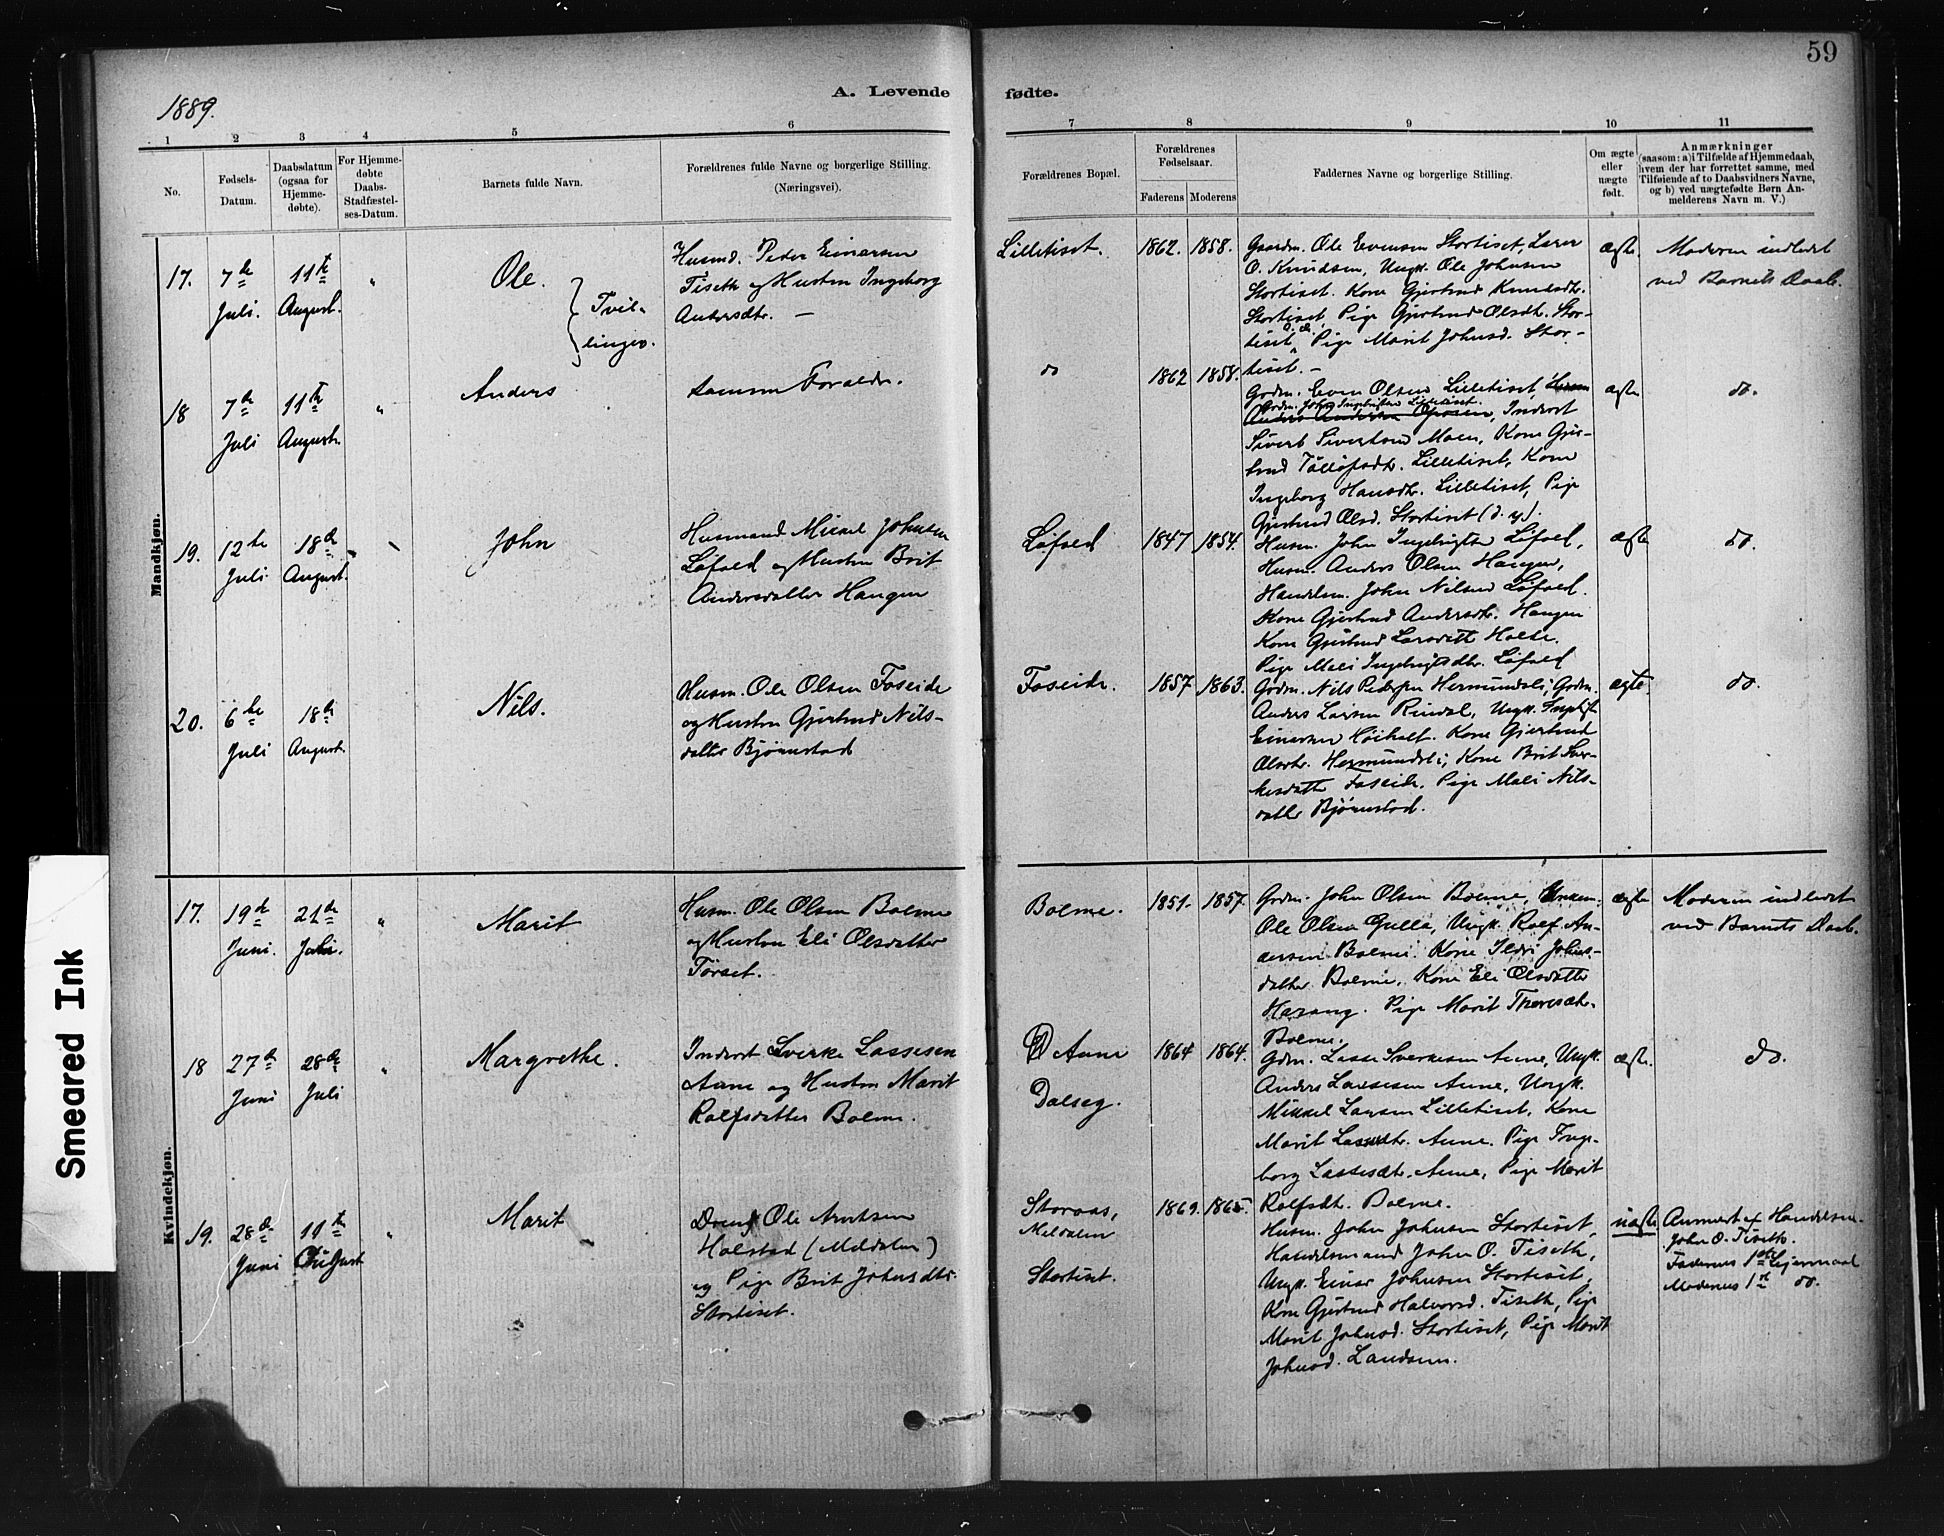 59
1889.
A. Levende fødte.
1 2 3 4 5 6 7 8 9 10 11
No.
Fødsels-
Datum.
Daabsdatum
(ogsaa for
Hjemme-
døbte).
For Hjemme-
døbte
Daabs-
Stadfæstel-
ses-Datum.
Barnets fulde Navn.
Forældrenes fulde Navne og borgerlige Stilling.
(Næringsvei).
Forældrenes Bopæl.
Forældrenes
Fødselsaar.
Faderens Moderens
Faddernes Navne og borgerlige Stilling.
Om ægte
eller
uægte
født.
Anmærkninger
(saasom: a) i Tilfælde af Hjemmedaab,
hvem der har forrettet samme, med
Tilføiende af to Daabsvidners Navne,
og b) ved uægtefødte Børn An-
melderens Navn m. V.)
Mandkjøn.
17.
7de
Juli.
11te
August.
"
Ole.
Tvil-
linger.
Husmd. Peder Einarsen
Tiseth og Hustru Ingeborg
Andersdtr. —
Lilletiset.
1862. 1858.
Gaardm. Ole Evensen Stortiset, Lærer
O. Knudsen, Ungk. Ole Johnsen
Stortiset. Kone Gjertrud Knudsdtr.
Stortiset, Pige Gjertrud Olsdtr. Stor-
tiset d. æ., Pige Marit Johnsd. Stor-
tiset. —
ægte.
Moderen indledet
ved Barnets Daab.
18
7de
Juli
11te
August.
"
Anders
samme Forældre.
do
1862 1858.
Gdm. Even Olsen Lilletiset,
Gdm. John Ingebrigtsen Lilletiset.
Anders Andersen, Inderst
Sivert Sivertsen Moen, Kone Gjer-
trud Tølløfsdtr. Lilletiset, Kone
Ingeborg Hansdtr. Lilletiset, Pige
Gjertrud Olsd. Stortiset (d. y.).
ægte
do.
19.
12te
Juli.
18de
August.
"
John
Husmand Mikael Johnsen
Løfald og Hustru Brit
Andersdatter Haugen
Løfald
1847 1854.
Husm. John Ingebrigtsen Løfald,
Husm. Anders Olsen Haugen,
Handelsm. John Nilsen Løfald.
Kone Gjertrud Andersdtr. Haugen
Kone Gjertrud Larsdatt Holte.
Pige Mali Ingebrigtsdtr. Løfald
ægte
do.
20.
6te
Juli
18de
August.
Nils.
Husm. Ole Olsen Foseide
og Hustru Gjertrud Nils-
datter Bjørnstad
Foseide.
1857 1863.
Gdm. Nils Pedersen Hermundsli, Gdm.
Anders Larsen Rindal, Ungk. Ingebrigt
Einarsen Høiholt. Kone Gjertrud
Olsdtr. Hermundsli, Kone Brit Sver-
kesdatter Foseide, Pige Mali Nils-
datter Bjørnstad.
ægte
do.
Kvindekjøn.
17.
19de
Juni.
21de
Juli.
"
Marit
Husm. Ole Olsen Bolme
og Hustru Eli Olsdatter
Tørset.
Bolme.
1851. 1857.
Gdm. John Olsen Bolme,
Ole Olsen Gulla, Ungk. Rolf An-
dersen Bolme. Kone Ildri Johns-
datter Bolme, Kone Eli Olsdatter
Harang. Pige Marit
Bolme.
ægte
Moderen indledet
ved Barnets Daab.
18
27de
Juni
28de
Juli
"
Margrethe.
Inderst Sverke Lassesen
Aune og Hustru Marit
Rolfsdatter Bolme.
Aune
Dalseg.
1864 1864.
Gdm. Lasse Sverkesen Aune, Ungk.
Anders Lassesen Aune, Ungk.
Mikkel Larsen Lilletiset, Kone
Marit Lassedtr. Aune. Pige Inge-
borg Lassesdtr. Aune, Pige Marit
Rolfsdt. Bolme.
ægte.
do.
19.
28de
Juni
11te
August
"
Marit
Dreng Ole Arntsen
Holstad (Meldalen)
og Pige Brit Johnsdtr.
Stortiset.
Storaas,
Meldalen
Stortiset.
1869. 1865.
Husm. John Johnsen Stortiset,
Handelsmand John O. Tiseth,
Ungk. Einar Johnsen Stortiset,
Kone Gjertrud Halvorsd. Tiseth, Pige
Marit Johnsd. Stortiset, Pige Marit
Johnsd. Landsem.
uægte
Anmeldt af Handelsm.
John O. Tiseth.
Faderens 1ste Leiermaal
Moderens 1ste do.
Smeared Ink